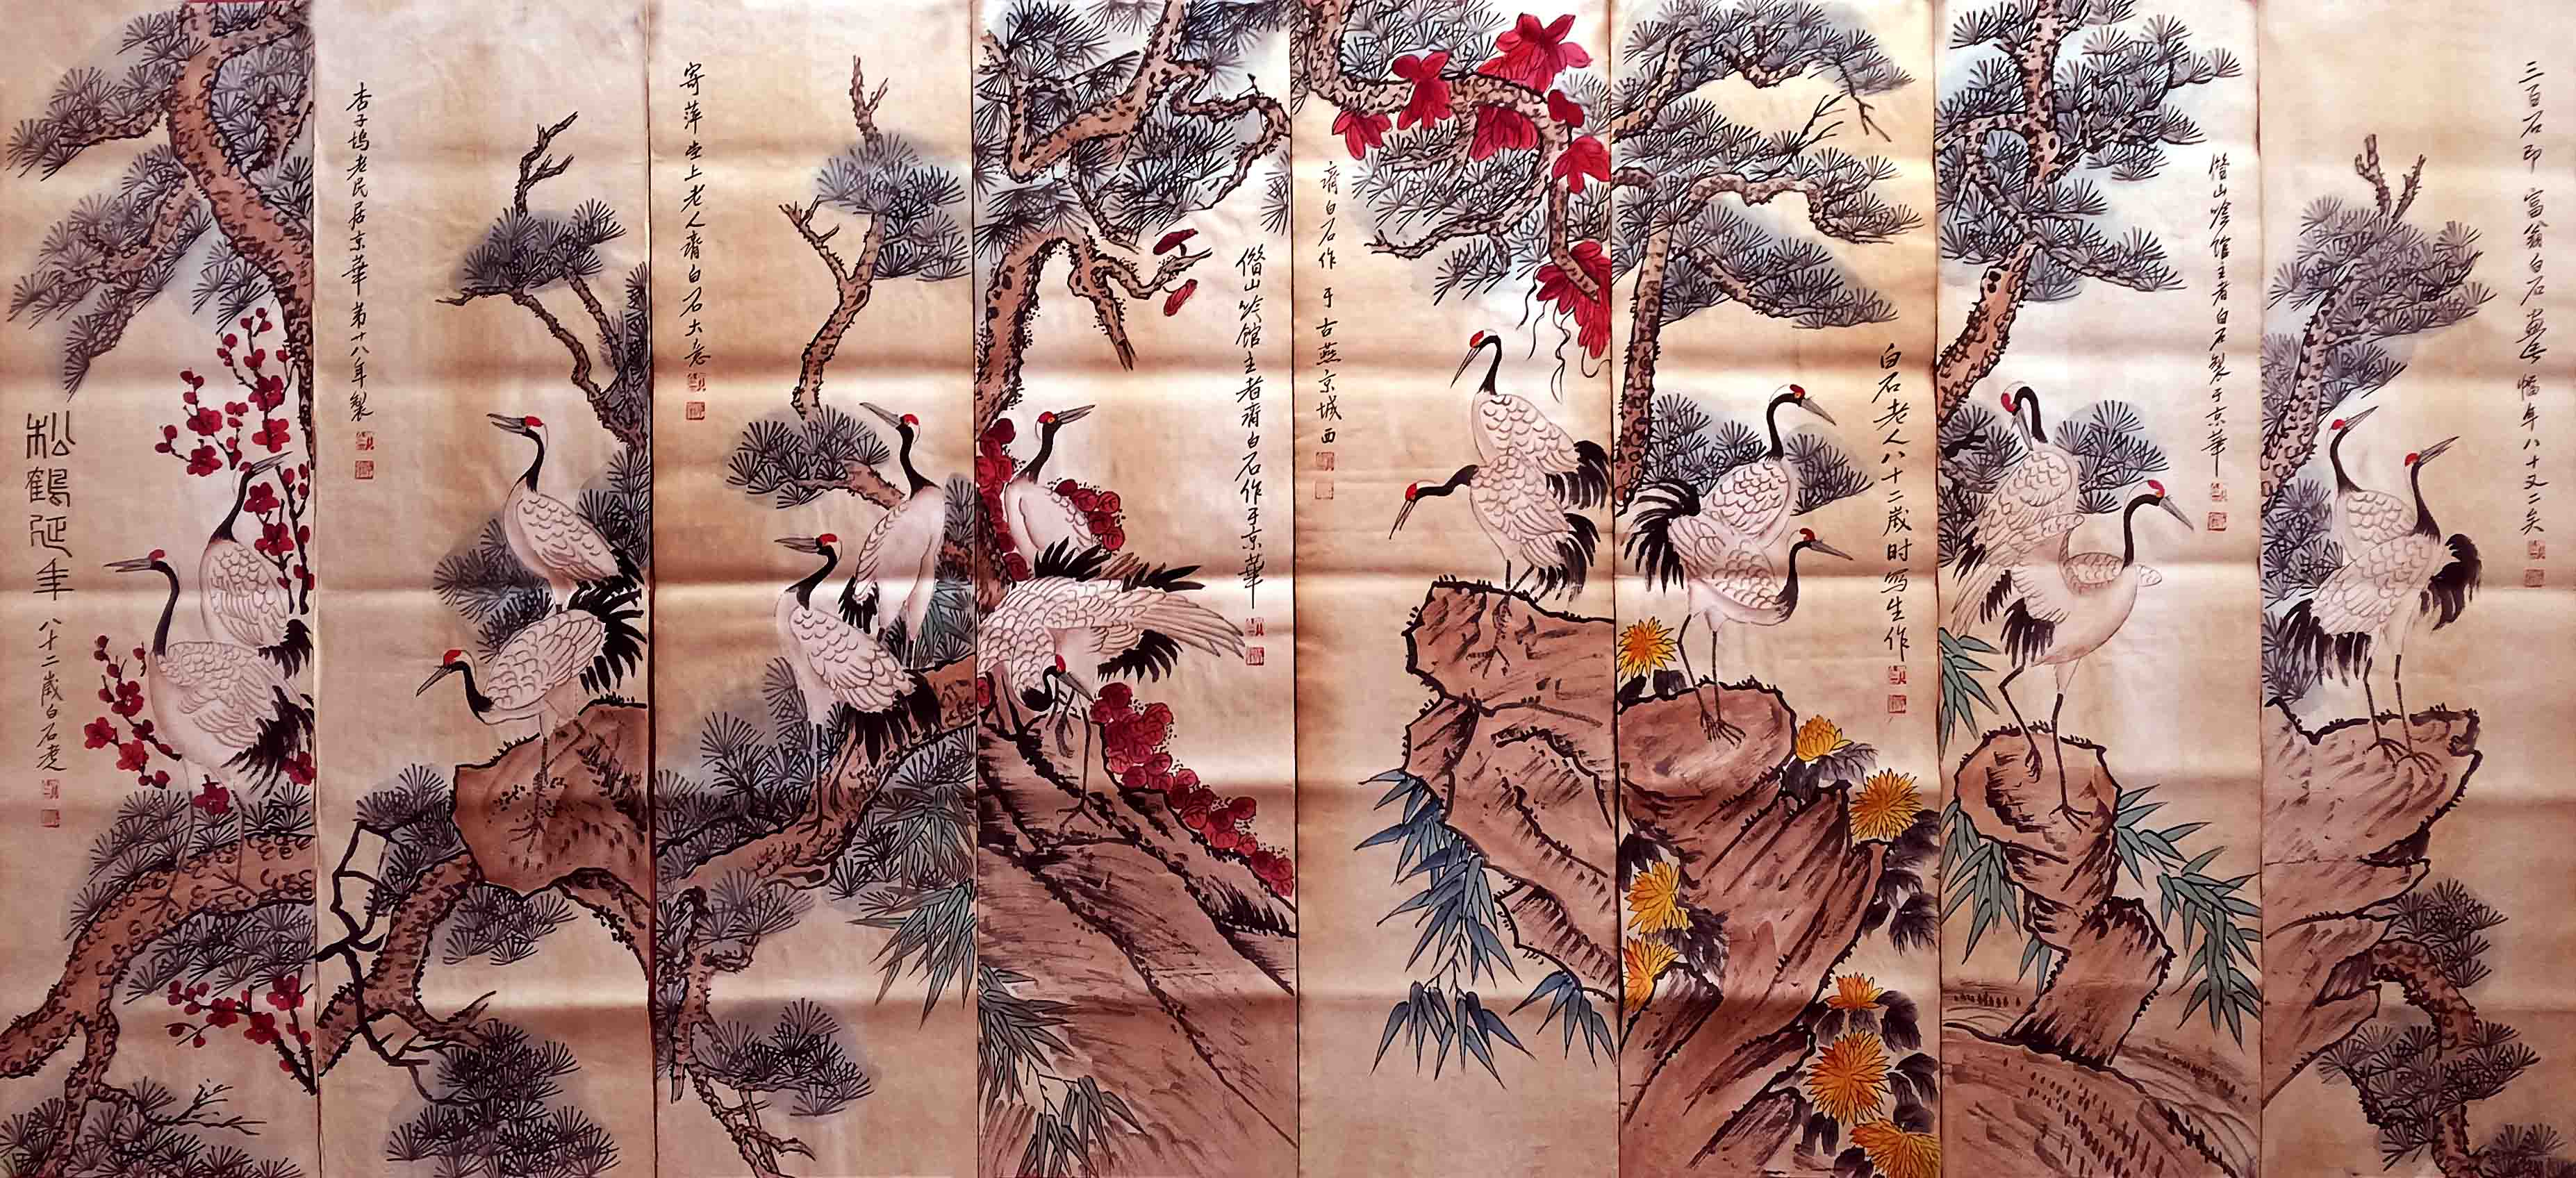 三百石印富翁白石画长幅年八十又二矣
借山吟馆主者白石製于京華
白石老人八十二歲时写生作
齊白石作于古燕京城西
借山吟館主者齊白石作于京華
寄萍堂上老人齊白石大意
杏子塢老民居京華第十八年製
松鶴延年
八十二歲白石老